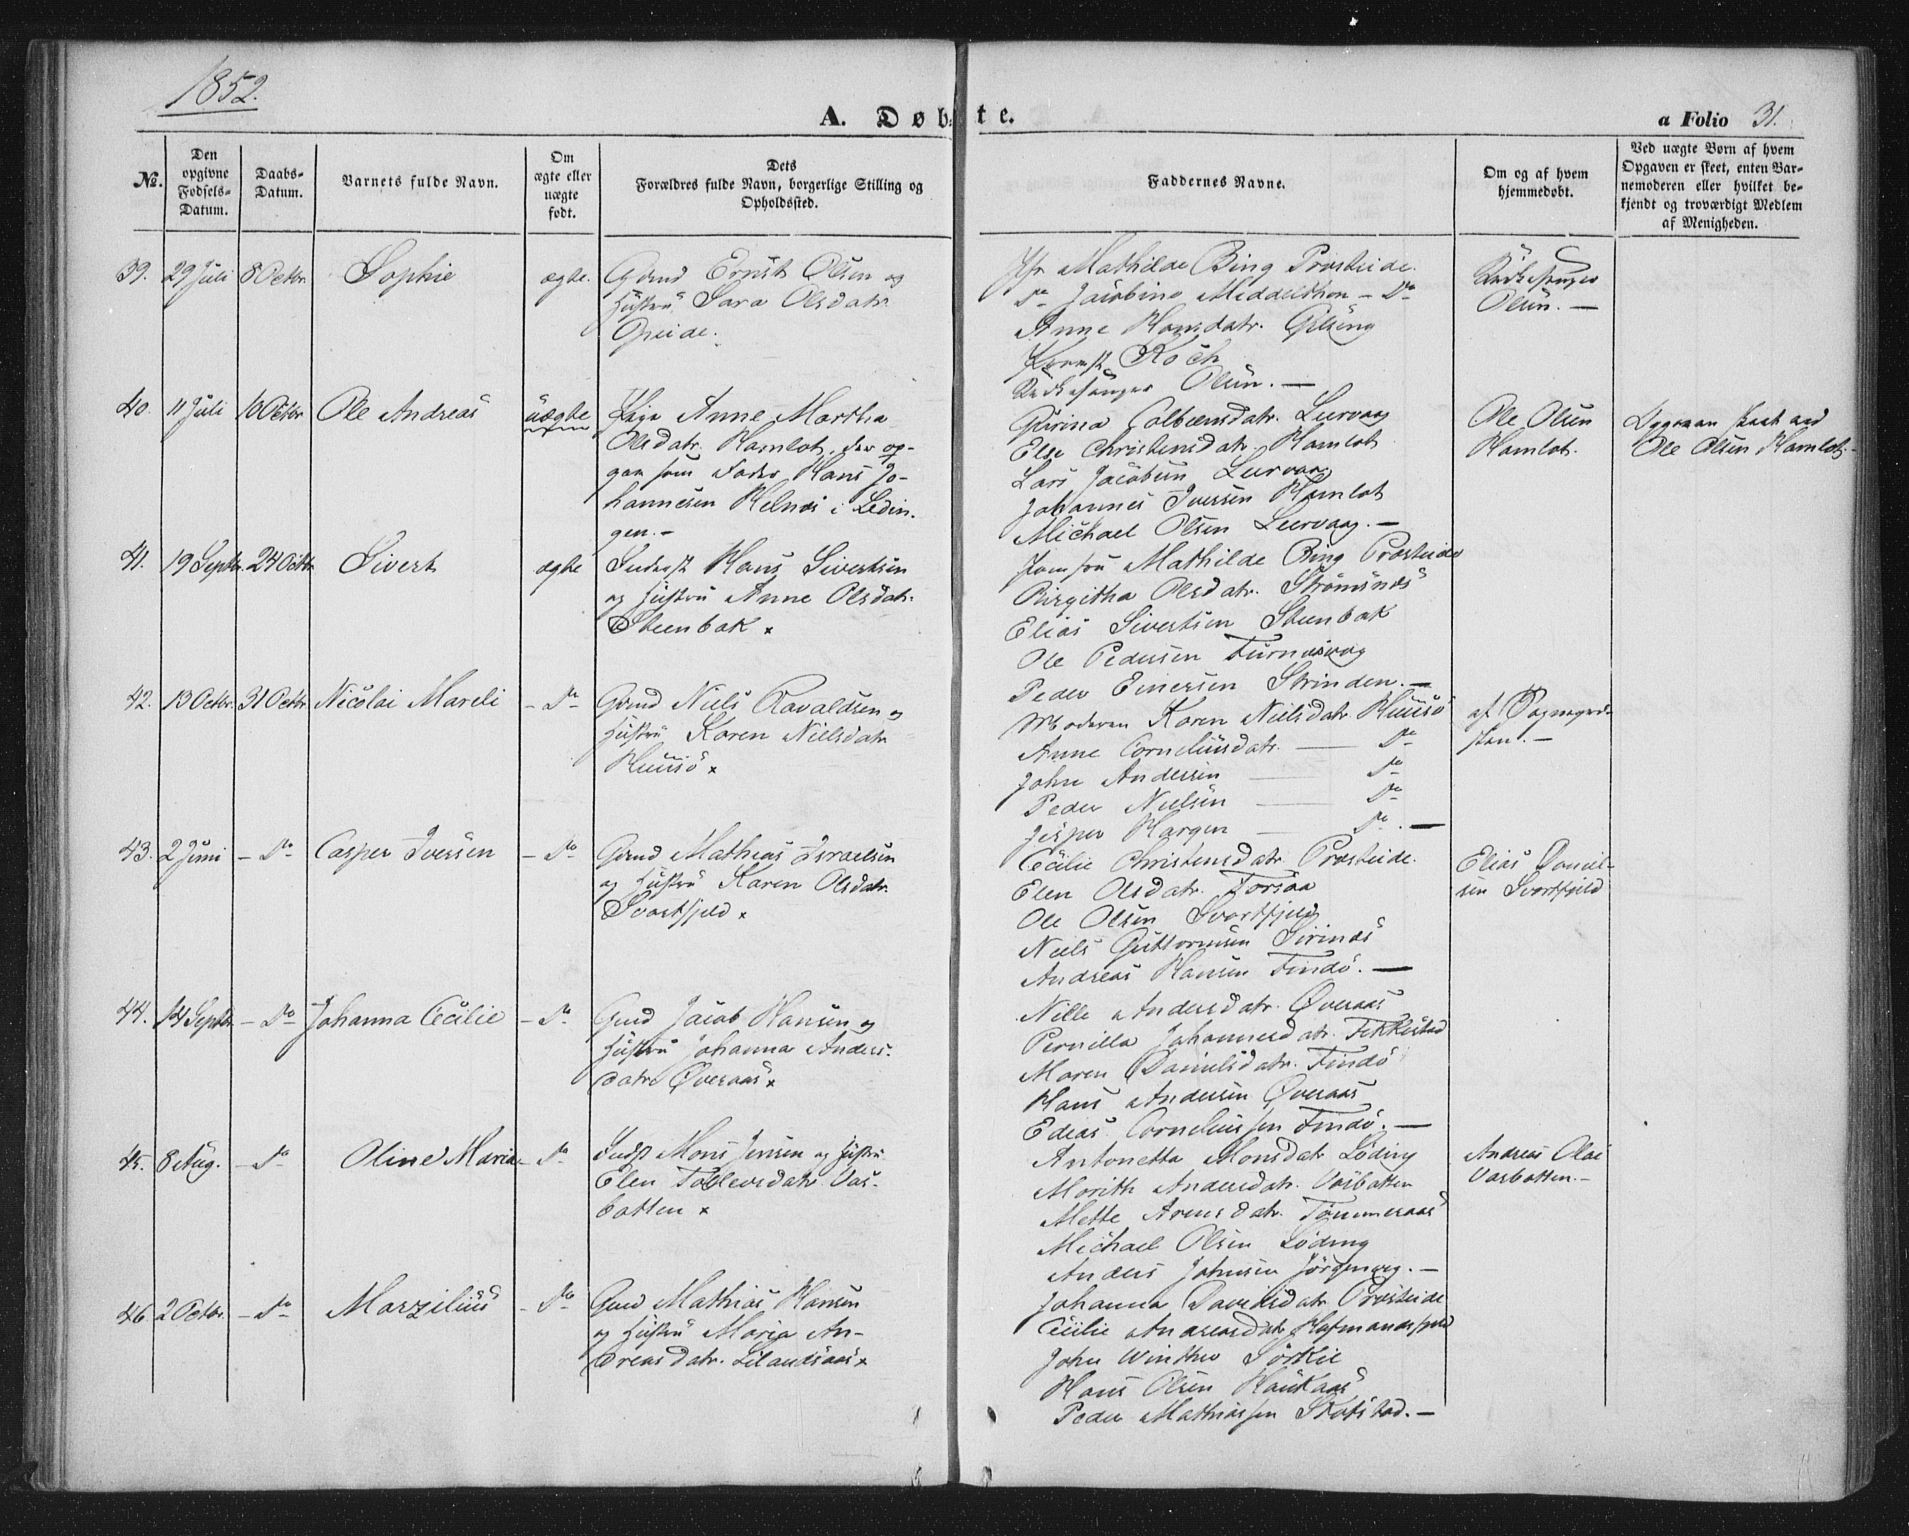 1852.
A. Døbte.
a Folio 31.
No.
Den opgivne Fødsels-Datum.
Daabs-Datum.
Barnets fulde Navn.
Om ægte eller uægte født.
Dets Forældres fulde Navn, borgerlige Stilling og Opholdssted.
Faddernes Navne.
Om og af hvem hjemmedøbt.
Ved uægte Børn af hvem Opgaven er skeet, enten Barnemoderen eller hvilket bekjendt og troværdigt Medlem af Menigheden.
39. 29 Juli 8 Octbr. Sophie ægte.
Gbmd Ernst Olsen og
Hustru Sara Olsdatr.
Opeide.
Jfr Mathilde Bing Prosteide.
Do Jacobine Middelthon - Do
Anne Hansdatr.
Koch
Kirkesanger Olsen. -
Kirkesanger
Olsen. -
40. 11 Juli 10 Octbr Ole Andreas uægte
Pige Anne Martha
Olsdatr. Hamlot, der op-
gav som Fader Hans Jo-
hannesen i Lødin-
gen. -
Leervaag
Else Christensdatr. Hamlot
Lars Jacobsen Leervaag
Johannes Iversen Hamlot
Michael Olsen Leervaag. -
Ole Olsen
Hamlot.
Opgaven skeet ved
Ole Olsen Hamlot. -
41. 19 Septbr. 24 Octbr Sivert ægte
Inderst Hans Sivertsen
og Hustru Anne Olsdatr.
Steenbak x
Jomfru Mathilde Bing Prosteide
Birgitha Olsdatr. Strømsnæs
Elias Sivertsen Steenbak
Ole Pedersen
Peder Einersen Strinden. -
42. 13 Octbr. 31 Octbr Nicolai Mareli - Do -
Gbmd Niels Ravaldsen og
Hustru Karen Nielsdatr
Huusø x
Moderen Karen Nielsdatr Huusø
Anne Corneliusdatr. - Do
John Andersen - Do
Peder Nielsen - Do
Jesper Hargen - Do. -
af Sognepræ-
sten. -
43. 2 Juni - Do Casper Iversen - Do
Gbmd Mathias Israelsen
og Hustru Karen Olsdatr.
Svartfjeld x
Cecilie Christensdatr. Prosteide.
Elen Olsdatr. Forsaa
Ole Olsen Svartfjeld
Niels Guttormsen
Andreas Hansen Findø. -
Elias Daniel-
sen Svartfjeld
44. 14 Septbr - Do Johanna Cecilie - Do
Gmd Jacob Hansen og
Hustru Johanna Anders-
datr. Øveraas x
Nille Andersdatr. Øveraas
Pernilla Johannesdatr.
Maren Danielsdatr. Findø
Hans Andersen Øveraas
Edias Corneliussen Findø. -
45. 8 Aug. - Do Oline Maria - Do
Indst Mons Jensen og Hustru
Elen Tollevsdatr. Vas-
botten x
Antonetta Monsdatr Løding
Morith Andersdatr. Vasbotten
Mette Arensdatr. Tømmeraas
Michael Olsen Løding
Anders Johnsen
Andreas Olai
Vasbotten. -
46. 2 Octbr. - Do Marzelius - Do
Gmd Mathias Hansen
og Hustru Maria An-
dreasdatr. Lilandsaas x
Johanna Davidsdatr Prosteide
Cecilie Andreasdatr
John Winther Sørkil
Hans Olsen Haukaas
Peder Mathiassen Skotstad. -